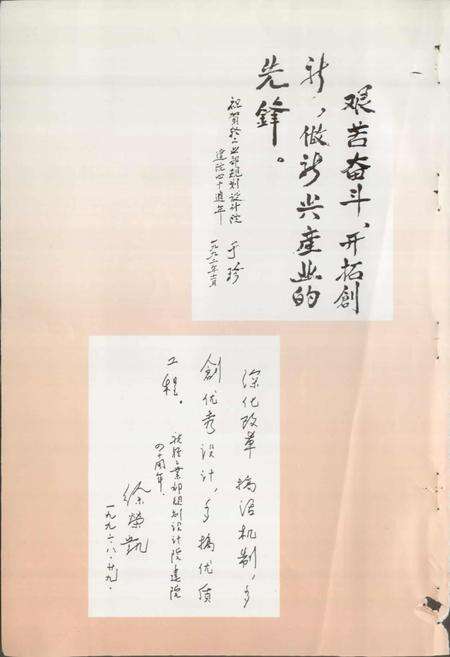 艰苦奋斗、开拓創
新，做新兴產业的
先鋒。
祝賀轻工业部规划设计院
建院四十週年
于珍
一九九二年六月
深化改革 搞活机制，多
創优秀设计，多搞优质
工程。
祝轻工業部规划设计院建院
四十周年
徐榮凱
一九九二·八·廿九·